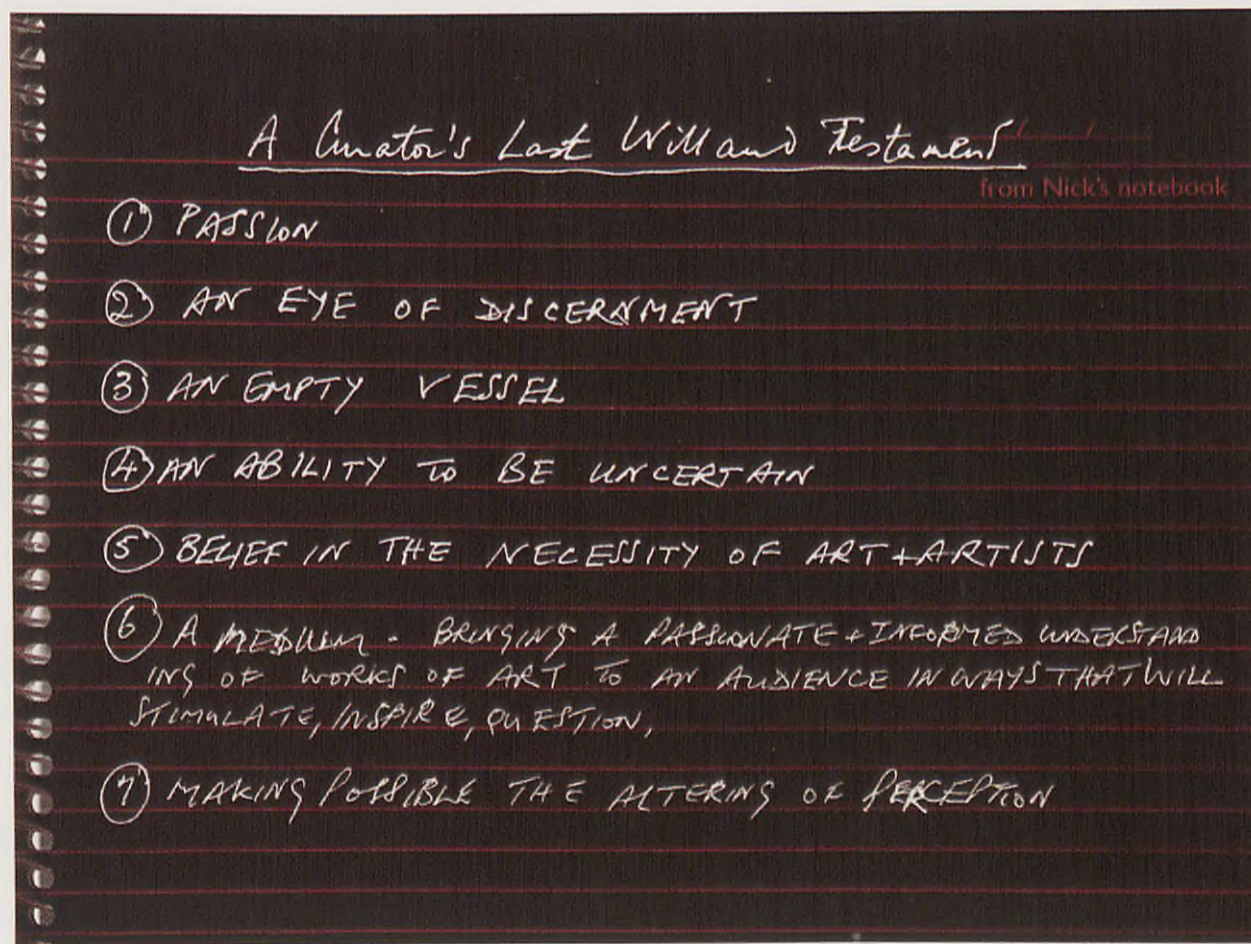 A Curator's Last Will and Testament
from Nick's notebook
① PASSION
② AN EYE OF DISCERNMENT
③ AN EMPTY VESSEL
④ AN ABILITY TO BE UNCERTAIN
⑤ BELIEF IN THE NECESSITY OF ART + ARTISTS
⑥ A MEDIUM - BRINGING A PASSIONATE + INFORMED UNDERSTAND
ING OF WORKS OF ART TO AN AUDIENCE IN WAYS THAT WILL
STIMULATE, INSPIRE, QUESTION,
⑦ MAKING POSSIBLE THE ALTERING OF PERCEPTION